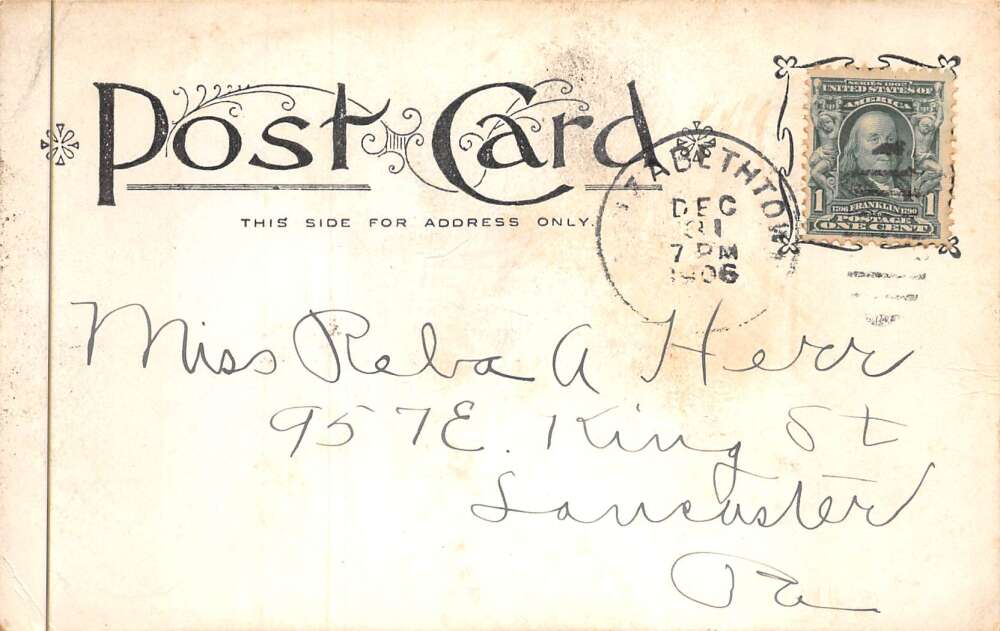 Post Card
THIS SIDE FOR ADDRESS ONLY.
SERIES 1902
UNITED STATES OF
AMERICA
1 FRANKLIN 1
POSTAGE
ONE CENT
ZABETHTOW
DEC
31
7 PM
1906
Miss Reba A Herr
957 E. King St
Lancaster
Pa